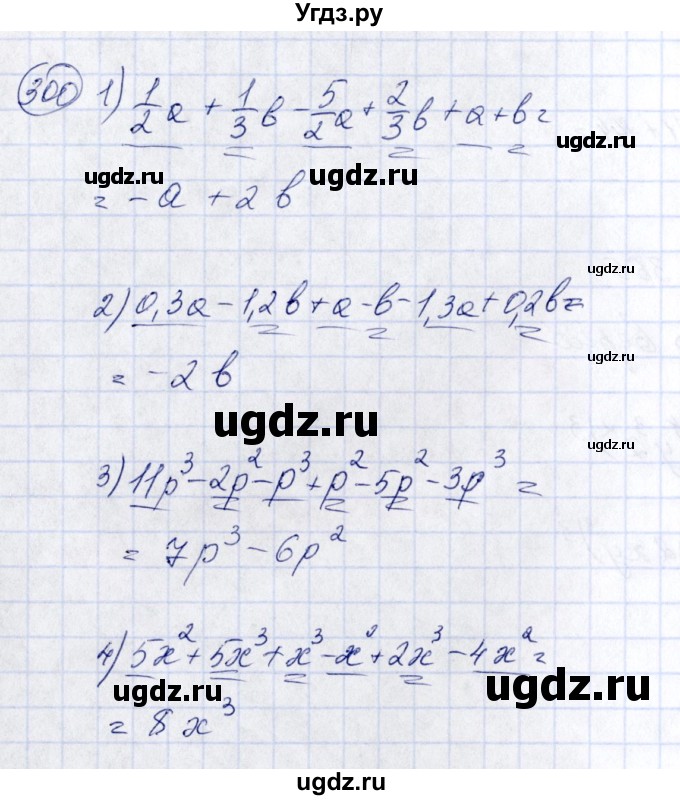 Угдз.ру
300 1) 1/2 a + 1/3 b - 5/2 a + 2/3 b + a + b =
ugdz.ru
ugdz.ru ugdz.ru
= -a + 2b
ugdz.ru
2) 0,3a - 1,2b + a - b - 1,3a + 0,2b =
ugdz.ru
= -2b
ugdz.ru
ugdz.ru
3) 11p³ - 2p² - p³ + p² - 5p² - 3p³ =
= 7p³ - 6p²
4) 5x² + 5x³ + x³ - x² + 2x³ - 4x² =
ugdz.ru ugdz.ru ugdz.ru
= 8x³
ugdz.ru